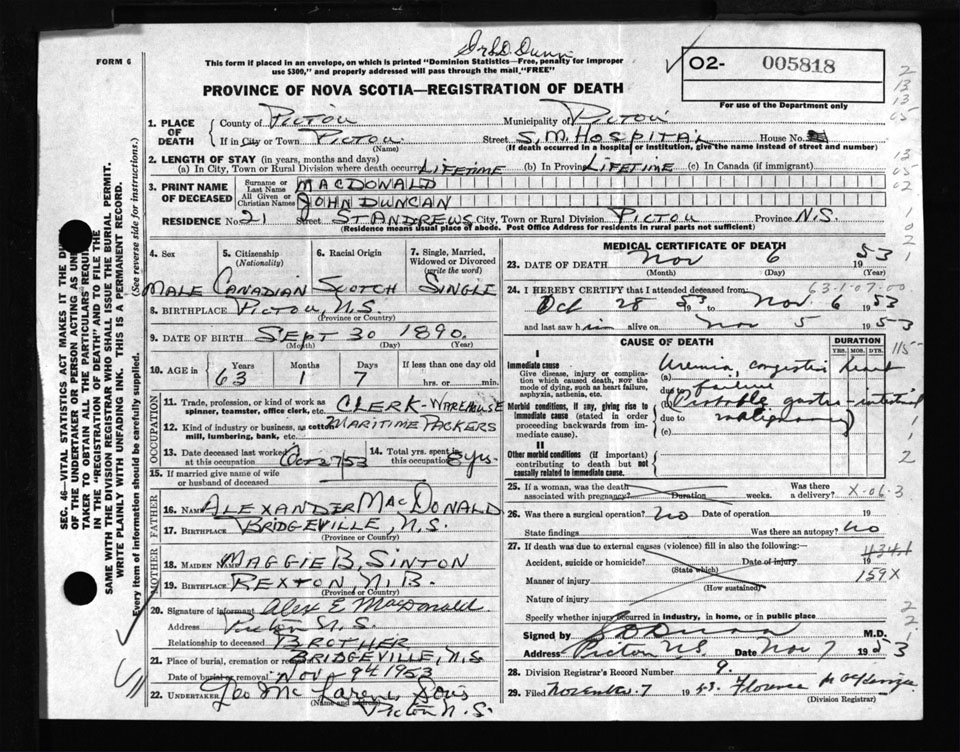 Dr S.D. Dunn
FORM 6
This form if placed in an envelope, on which is printed "Dominion Statistics—Free, penalty for improper
use $300," and properly addressed will pass through the mail "FREE"
O2- 005818
For use of the Department only
PROVINCE OF NOVA SCOTIA—REGISTRATION OF DEATH
1. PLACE OF DEATH
County of Pictou Municipality of Pictou
If in City or Town Pictou Street S.M. HOSPITAL House No.
(Name) (If death occurred in a hospital or institution, give the name instead of street and number)
2. LENGTH OF STAY (in years, months and days)
(a) In City, Town or Rural Division where death occurred LIFETIME (b) In Province LIFETIME (c) In Canada (if immigrant)
3. PRINT NAME OF DECEASED
Surname or Last Name MACDONALD
All Given or Christian Names JOHN DUNCAN
RESIDENCE No. 21 Street ST ANDREWS City, Town or Rural Division PICTOU Province N.S.
(Residence means usual place of abode. Post Office Address for residents in rural parts not sufficient)
4. Sex
MALE
5. Citizenship
(Nationality)
CANADIAN
6. Racial Origin
SCOTCH
7. Single, Married,
Widowed or Divorced
(write the word)
SINGLE
8. BIRTHPLACE PICTOU, N.S.
(Province or Country)
9. DATE OF BIRTH SEPT 30 1890
(Month) (Day) (Year)
10. AGE in 63 Years 1 Months 7 Days
If less than one day old
hrs. or min.
OCCUPATION
11. Trade, profession, or kind of work as
spinner, teamster, office clerk, etc. CLERK-WAREHOUSE
12. Kind of industry or business, as cotton
mill, lumbering, bank, etc. MARITIME PACKERS
13. Date deceased last worked
at this occupation Oct 27/53
14. Total yrs. spent in
this occupation 8 yrs.
15. If married give name of wife
or husband of deceased
FATHER
16. NAME ALEXANDER MACDONALD
17. BIRTHPLACE BRIDGEVILLE, N.S.
(Province or Country)
MOTHER
18. MAIDEN NAME MAGGIE B. SINTON
19. BIRTHPLACE REXTON, N.B.
(Province or Country)
20. Signature of informant Alex E MacDonald
Address Pictou N.S.
Relationship to deceased BROTHER
21. Place of burial, cremation or removal BRIDGEVILLE, N.S
Date of burial or removal NOV 9th 1953
22. UNDERTAKER Geo McLaren Sons
(Name and Address)
Pictou N.S.
MEDICAL CERTIFICATE OF DEATH
23. DATE OF DEATH Nov 6 1953
(Month) (Day) (Year)
24. I HEREBY CERTIFY that I attended deceased from: 63-1-07-00
Oct 28 1953 to Nov. 6 1953
and last saw him alive on Nov 5 1953
CAUSE OF DEATH
DURATION
YRS. MOS. DYS.
I
Immediate cause
Give disease, injury or complication which caused death, not the mode of dying, such as heart failure, asphyxia, asthenia, etc.
(a) Uremia, congestive heart
due to failure
Morbid conditions, if any, giving rise to immediate cause (stated in order proceeding backwards from immediate cause).
(b) Probable gastro-intestinal
due to malignancy
(c)
II
Other morbid conditions (if important) contributing to death but not causally related to immediate cause.
25. If a woman, was the death
associated with pregnancy? Duration weeks.
Was there
a delivery? X-06-3
26. Was there a surgical operation? No Date of operation 19
State findings Was there an autopsy? No
27. If death was due to external causes (violence) fill in also the following:—
Accident, suicide or homicide? Date of injury 19
(State which)
434.1
Manner of injury 159X
(How sustained)
Nature of injury
Specify whether injury occurred in industry, in home, or in public place
Signed by S D Dunn M.D.
Address Pictou N.S. Date Nov 7 1953
28. Division Registrar's Record Number 9.
29. Filed November 7 1953. Florence McKenzie
(Division Registrar)
SEC. 46—VITAL STATISTICS ACT MAKES IT THE
OF THE UNDERTAKER OR PERSON ACTING AS
TAKER TO OBTAIN ALL THE PARTICULARS
IN THE "REGISTRATION OF DEATH" AND TO FILE THE
SAME WITH THE DIVISION REGISTRAR WHO SHALL ISSUE THE BURIAL PERMIT.
WRITE PLAINLY WITH UNFADING INK. THIS IS A PERMANENT RECORD.
Every item of information should be carefully supplied. (See reverse side for instructions.)
2
13
13
05
13
05
02
1
0
2
1
115
1
2
2
2
1